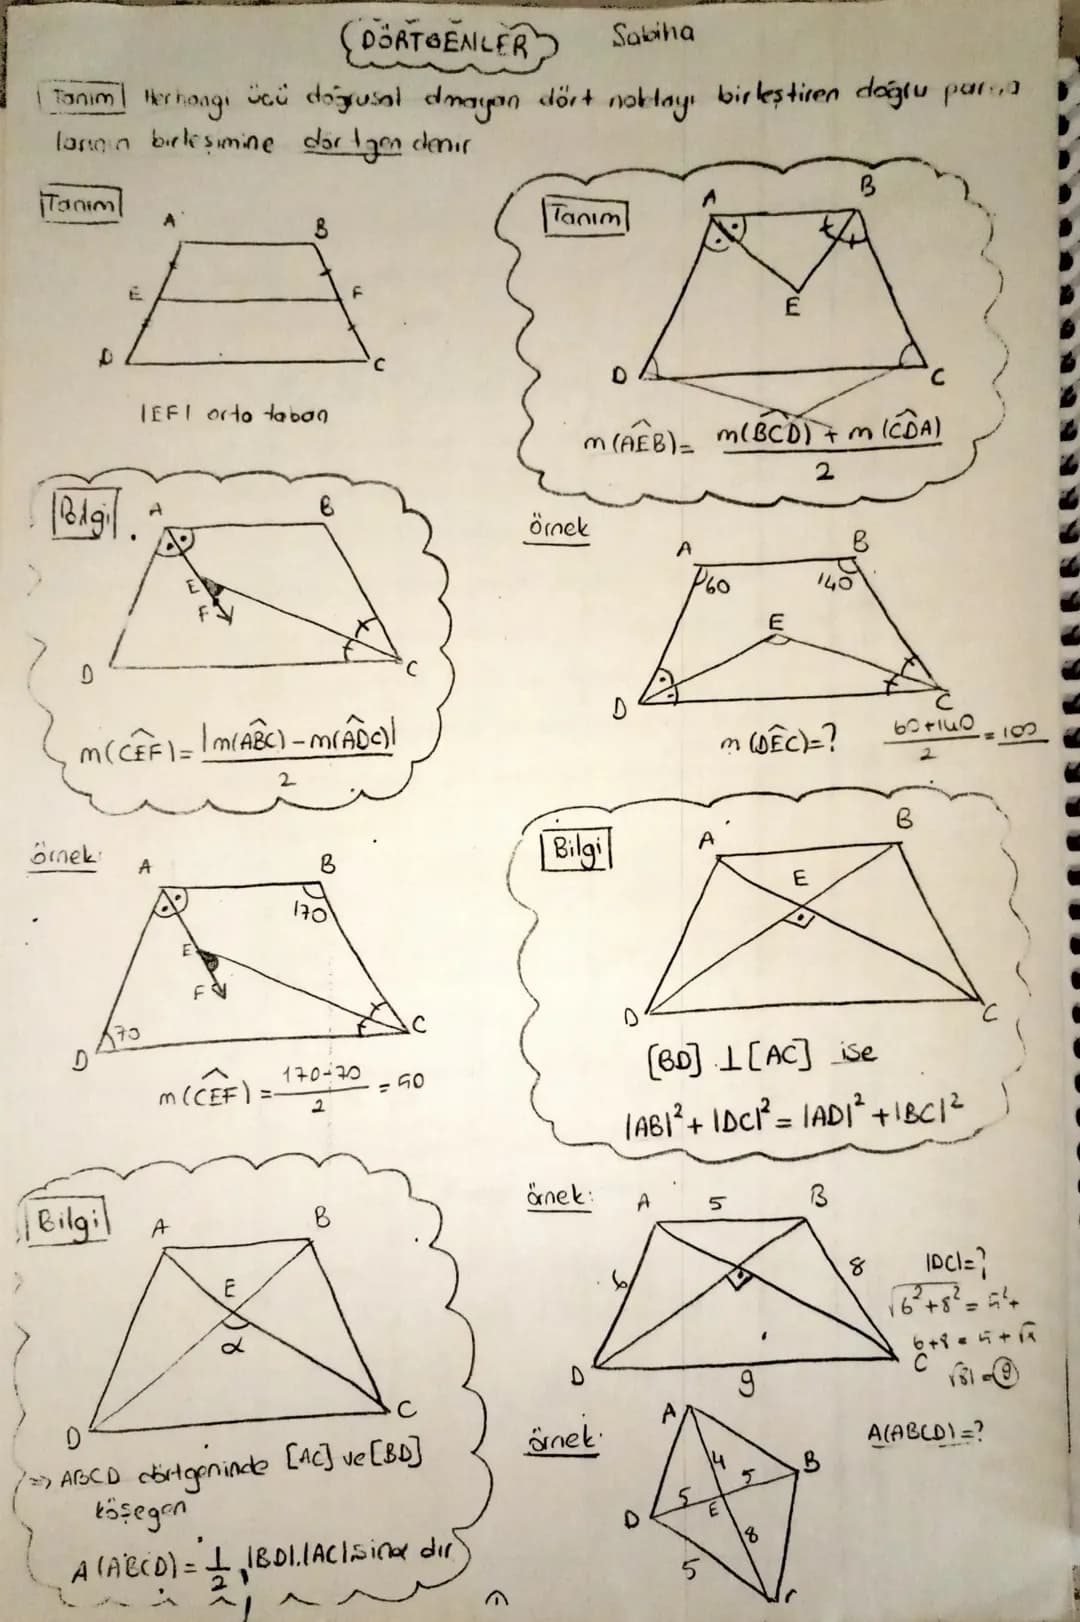 DÖRTGENLER
Sabiha
Tanım Herhangi üçü doğrusal olmayan dört noktayı birleştiren doğru parça
larının birleşimine dörtgen denir
Tanım
A B
E F
D C
|EF| orta taban
Tanım
A B
E
D C
m(AÊB) = m(BĈD) + m(CD̂A)
2
Bilgi
A B
E
F
D C
m(CÊF) = |m(AB̂C) - m(AD̂C)|
2
örnek
A B
60 140
E
D C
m(DÊC)=? 60+140 = 100
2
örnek:
A B
170
E
F
70
D C
m(CÊF) = 170-70 = 50
2
Bilgi
A B
E
D C
[BD] ⊥ [AC] ise
|AB|² + |DC|² = |AD|² + |BC|²
Bilgi
A B
E
α
D C
=> ABCD dörtgeninde [AC] ve [BD]
köşegen
A(ABCD) = 1 |BD|.|AC| sinα dır
2
örnek:
A 5 B
6 8
D 9 C
|DC|=?
√6²+8² = 5²+
6+8 = 5+√x
√81 = 9
örnek:
A(ABCD)=?
A
4 5 B
5 E
D 8
5
C